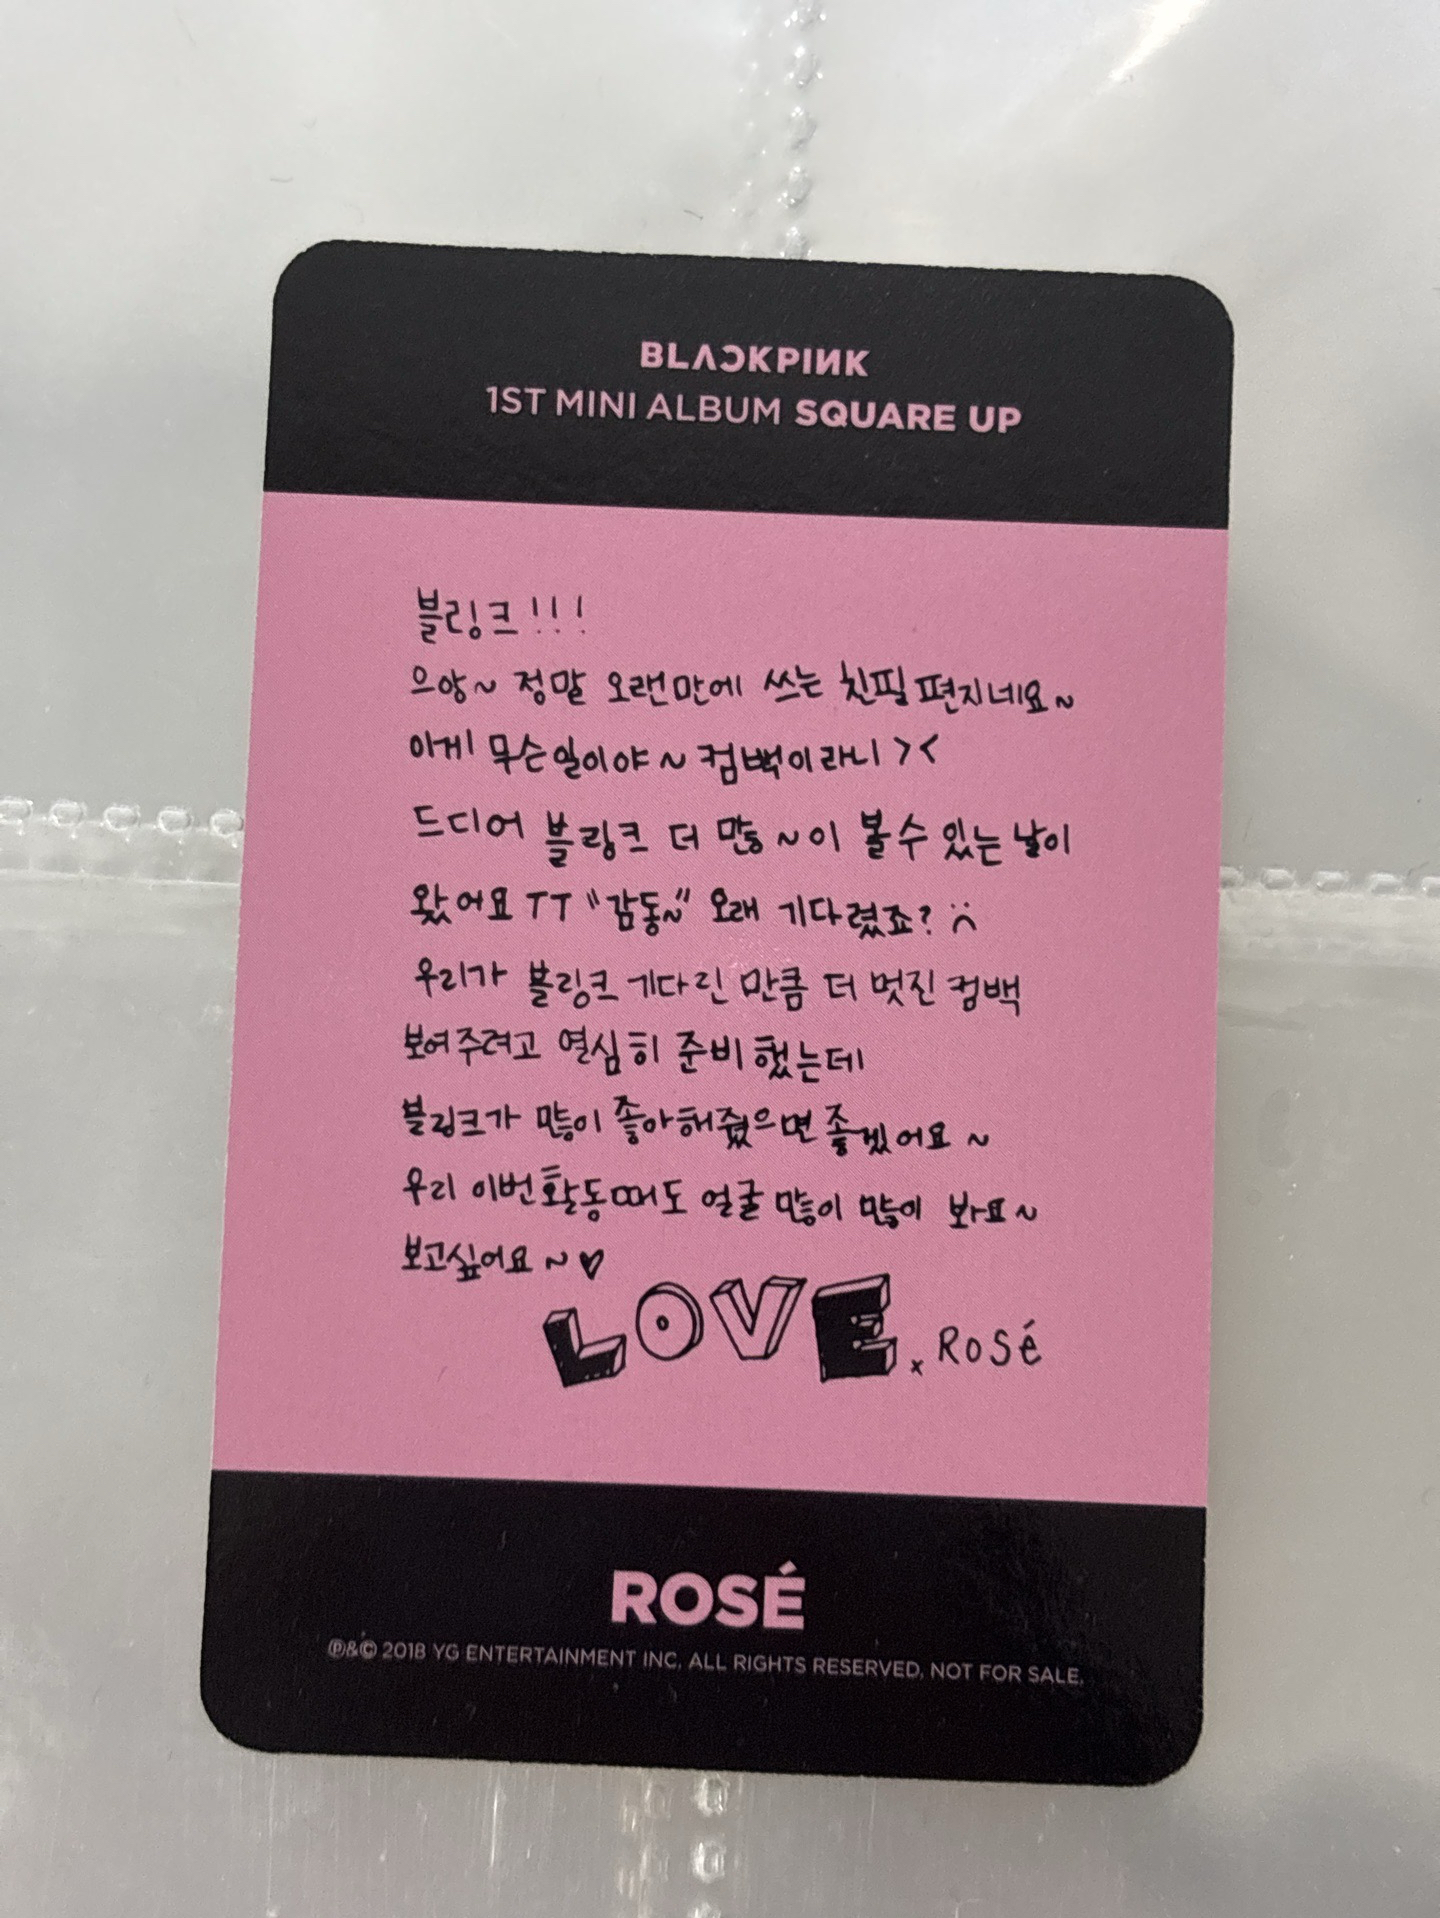 BLACKPINK
1ST MINI ALBUM SQUARE UP
블링크!!!
으앙~ 정말 오랜만에 쓰는 친필 편지네요~
이게 무슨일이야~ 컴백이라니 ><
드디어 블링크 더 많~이 볼수 있는 날이
왔어요 TT "감동~" 오래 기다렸죠? :(
우리가 블링크 기다린 만큼 더 멋진 컴백
보여주려고 열심히 준비했는데
블링크가 많이 좋아해줬으면 좋겠어요~
우리 이번활동때도 얼굴 많이 많이 봐요~
보고싶어요~♡
LOVE. x ROSÉ
ROSÉ
℗&© 2018 YG ENTERTAINMENT INC. ALL RIGHTS RESERVED. NOT FOR SALE.